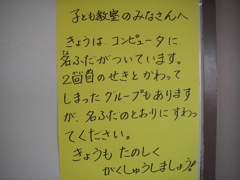 子ども教室のみなさんへ
きょうは、コンピュータに
名ふだがついています。
2回目のせきとかわって
しまったグループもあります
が、名ふだのとおりにすわっ
てください。
きょうも たのしく
がくしゅうしましょう!!